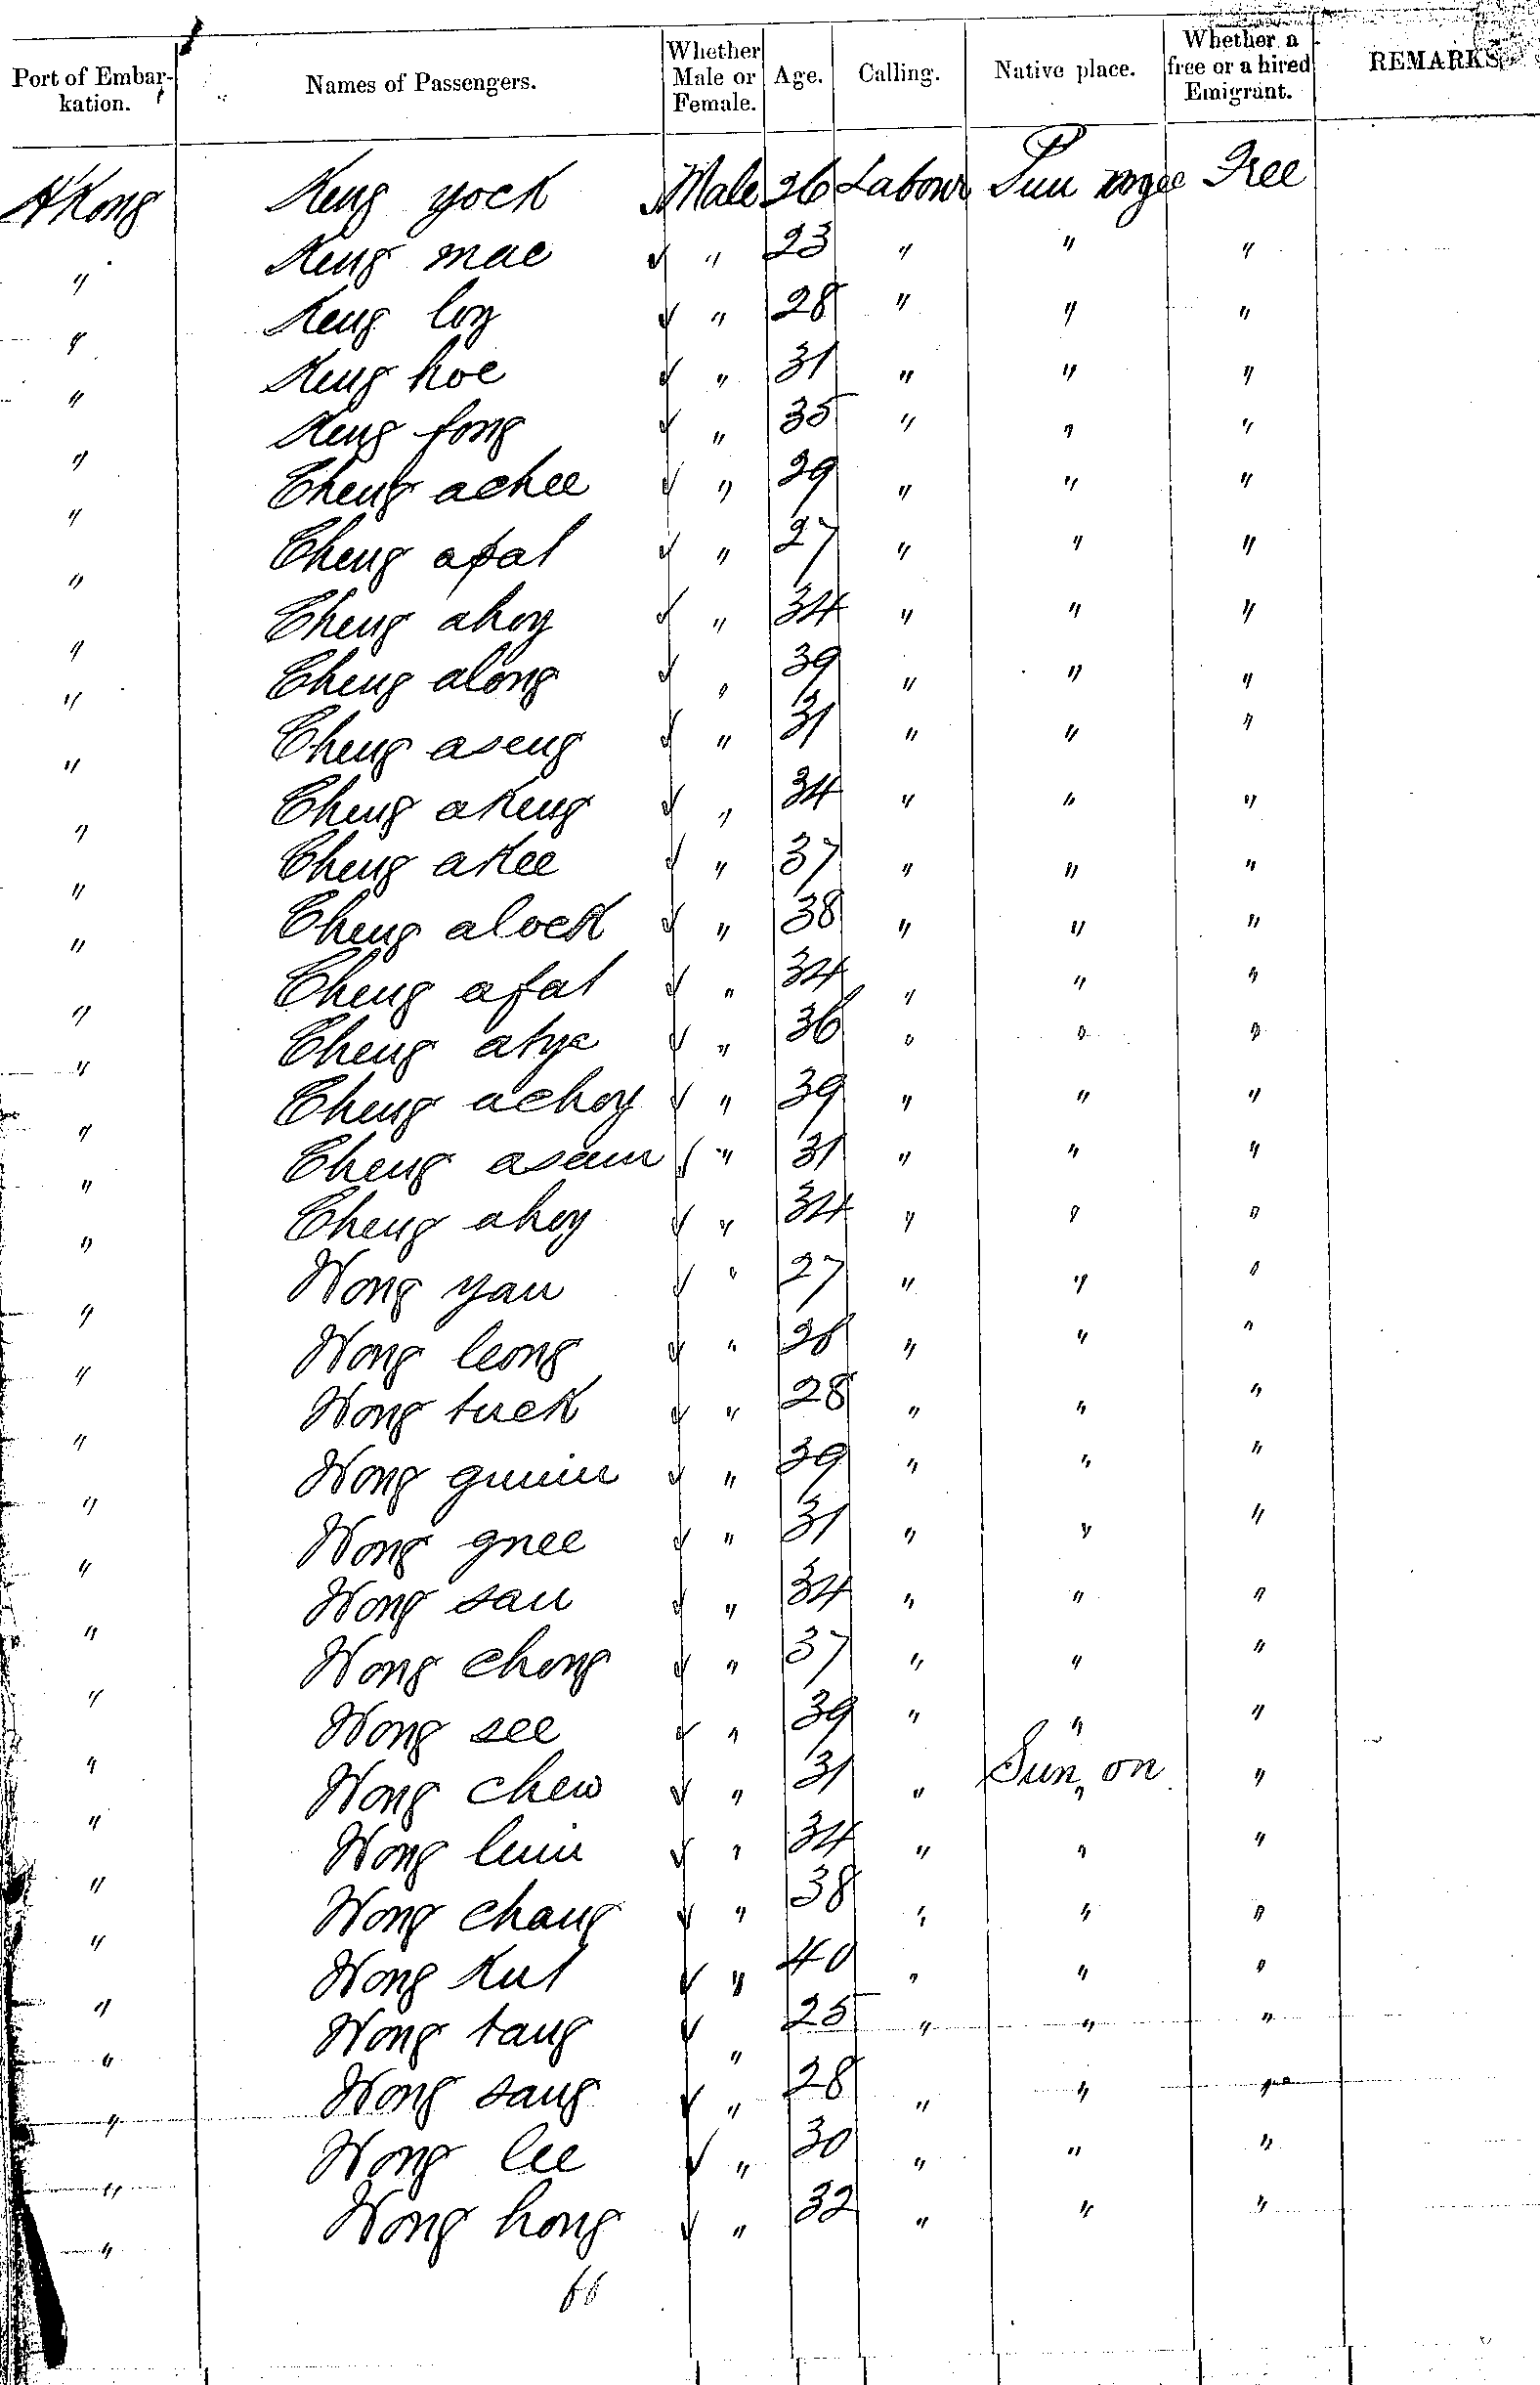 Port of Embar-kation. Names of Passengers. Whether Male or Female. Age. Calling. Native place. Whether a free or a hired Emigrant. REMARKS
H'Kong Keng yock Male 26 Labour Free
" Keng mae " 23 " " "
" Keng loy " 28 " " "
" Keng hoe " 31 " " "
" Keng fong " 35 " " "
" Cheng achee " 29 " " "
" Cheng apat " 27 " " "
" Cheng ahoy " 34 " " "
" Cheng along " 39 " " "
" Cheng aseng " 31 " " "
" Cheng akeng " 34 " " "
" Cheng akee " 37 " " "
" Cheng alock " 38 " " "
" Cheng afat " 34 " " "
" Cheng " 36 " " "
" Cheng achoy " 39 " " "
" Cheng asam " 31 " " "
" Cheng ahoy " 34 " " "
" Wong yau " 27 " " "
" Wong leong " 28 " " "
" Wong tuck " 28 " " "
" Wong " 39 " " "
" Wong gnee " 31 " " "
" Wong san " 34 " " "
" Wong chong " 37 " " "
" Wong see " 39 " " "
" Wong chew " 31 " Sun on "
" Wong " 34 " " "
" Wong chang " 38 " " "
" Wong kut " 40 " " "
" Wong tang " 25 " " "
" Wong sang " 28 " " "
" Wong lee " 30 " " "
" Wong hong " 32 " " "